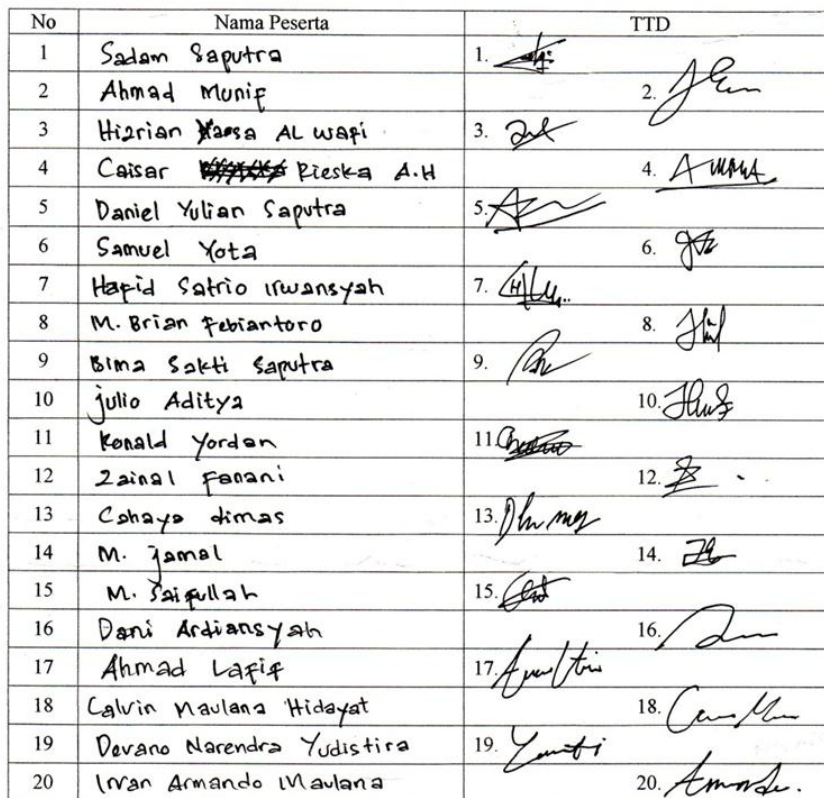 No Nama Peserta TTD
1 Sadam Saputra 1.
2 Ahmad Munif 2.
3 Hizrian AL Wafi 3.
4 Caisar Rieska A.H 4.
5 Daniel Yulian Saputra 5.
6 Samuel Yota 6.
7 Hafid Satrio Irwansyah 7.
8 M. Brian Febiantoro 8.
9 Bima Sakti Saputra 9.
10 Julio Aditya 10.
11 Ronald Yordan 11.
12 Zainal Fanani 12.
13 Cahaya dimas 13.
14 M. jamal 14.
15 M. Saifullah 15.
16 Dani Ardiansyah 16.
17 Ahmad Lafif 17.
18 Calvin Maulana Hidayat 18.
19 Devano Narendra Yudistira 19.
20 Irvan Armando Maulana 20.